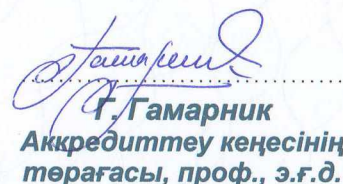 Г. Гамарник
Аккредиттеу кеңесінің
төрағасы, проф., э.ғ.д.